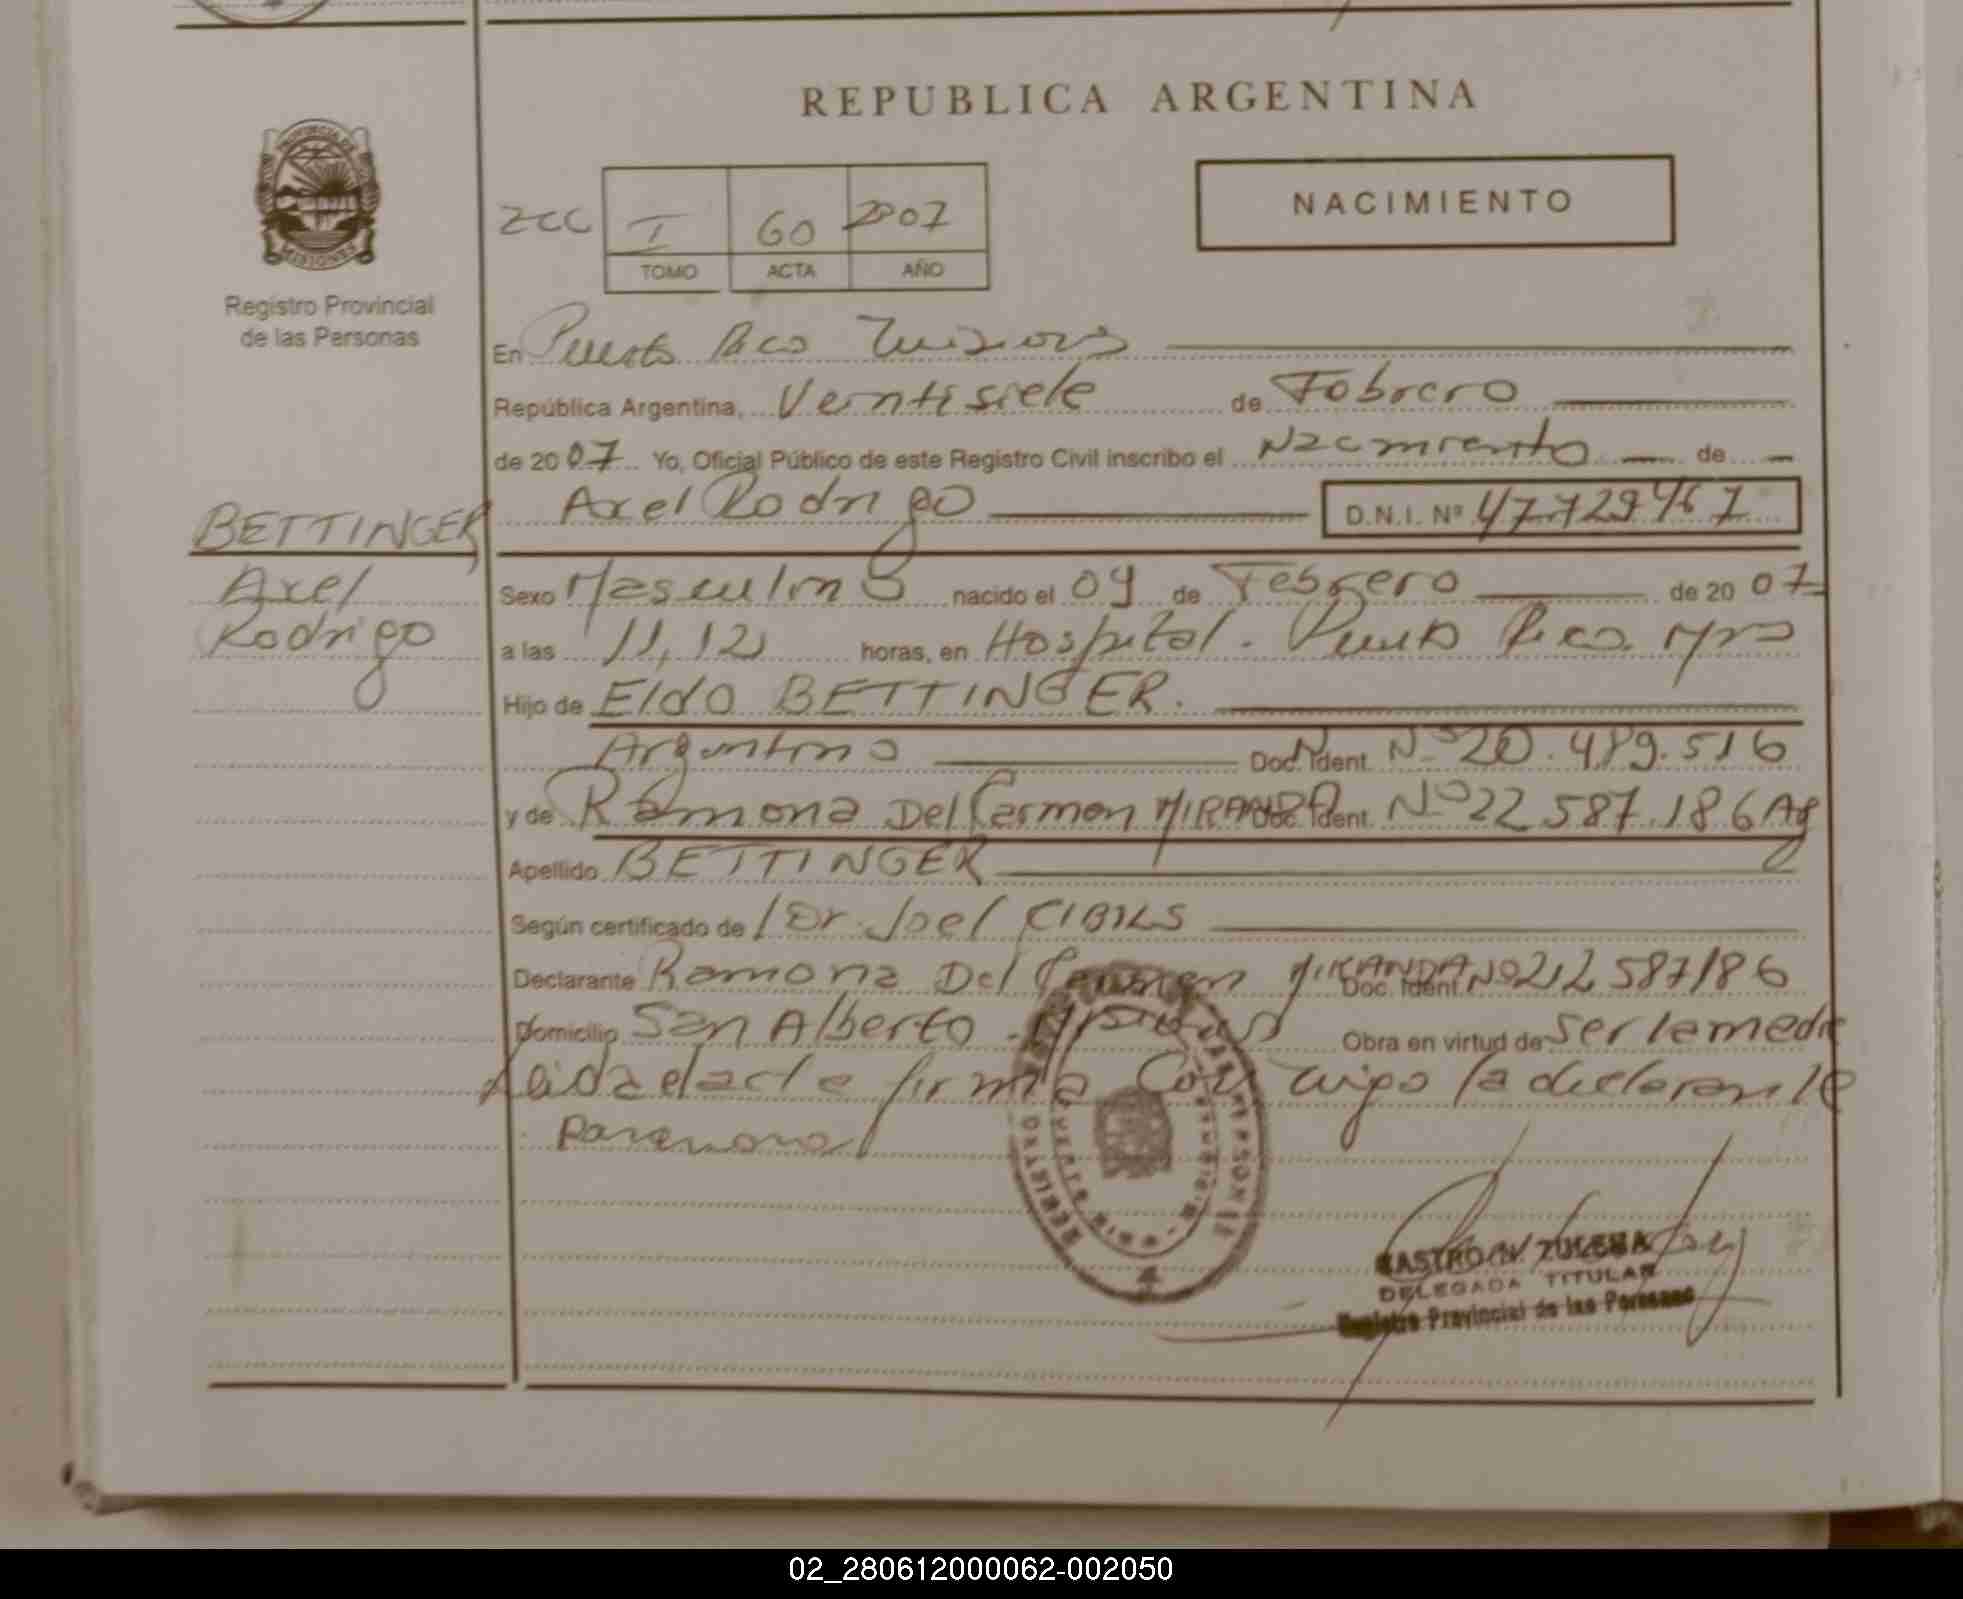 REPUBLICA ARGENTINA
PROVINCIA DE
MISIONES
Registro Provincial
de las Personas
ZCC I 60 2007
TOMO ACTA AÑO
NACIMIENTO
En Puerto Rico Misiones
República Argentina, Veintisiete de Febrero
de 2007 Yo, Oficial Público de este Registro Civil inscribo el Nacimiento de
BETTINGER Axel Rodrigo D.N.I. Nº 47.729.467
Axel Sexo Masculino nacido el 09 de Febrero de 2007
Rodrigo a las 11,12 horas, en Hospital. Puerto Rico. Mnes
Hijo de Eldo BETTINGER.
Argentino Doc. Ident. Nº 20.489.516
y de Ramona Del Carmen MIRANDA Doc. Ident. Nº 22 587.186 Ag
Apellido BETTINGER
Según certificado de Dr. Joel CIBILS
Declarante Ramona Del Carmen MIRANDA Doc. Ident. Nº 22 587186
Domicilio San Alberto Misiones Obra en virtud de Ser la madre
Leida el acta firma Con migo la declarante
CASTRO N. ZULEMA
DELEGADA TITULAR
Registro Provincial de las Personas
02_280612000062-002050